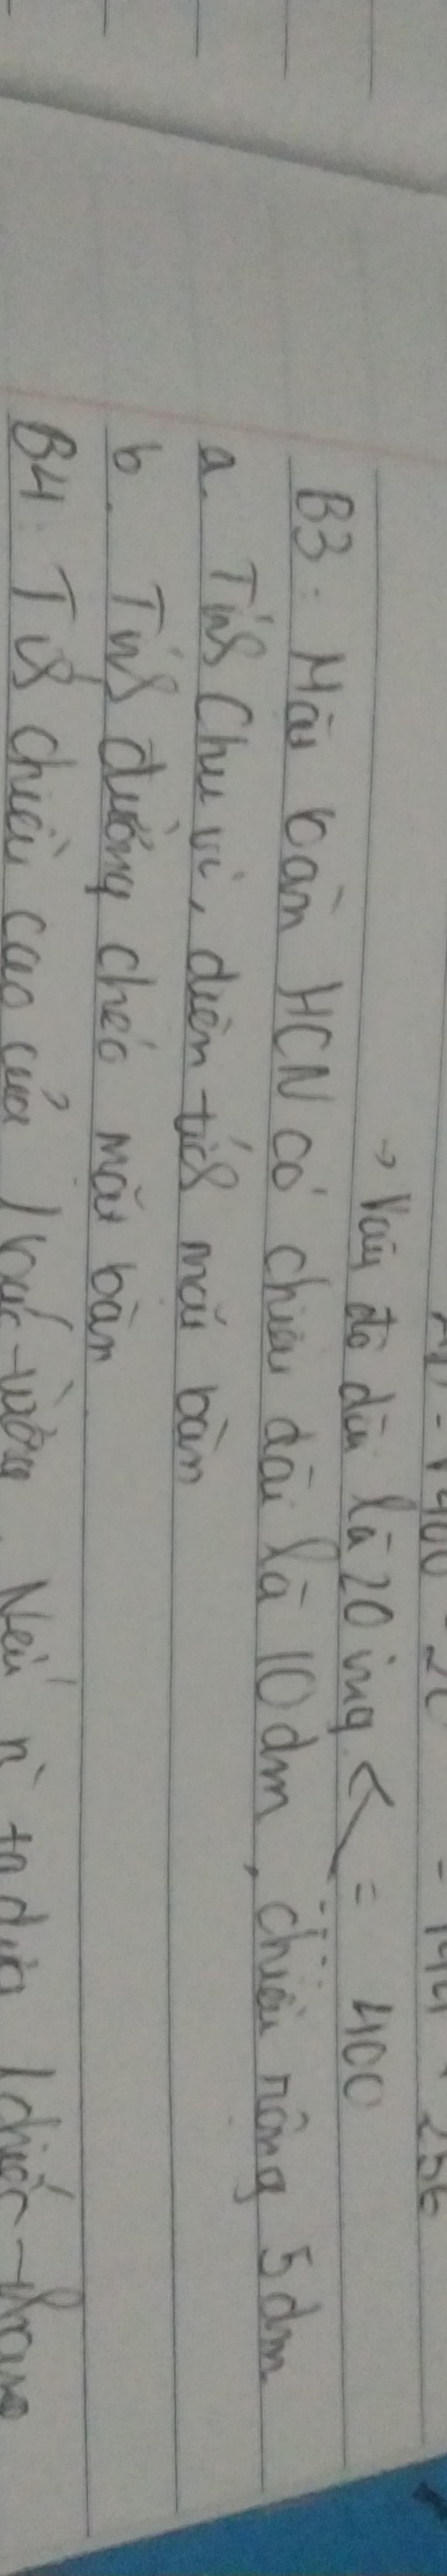 = 144 + 256
→ Vậy độ dài là 20 inq < = 400
B3: Mặt bàn HCN có chiều dài là 10 dm, chiều rộng 5 dm
a. Tính Chu vi, diện tích mặt bàn
b. Tính đường chéo mặt bàn
B4: Tính chiều cao của 1 bức tường. Nếu ta dựa 1 chiếc thang